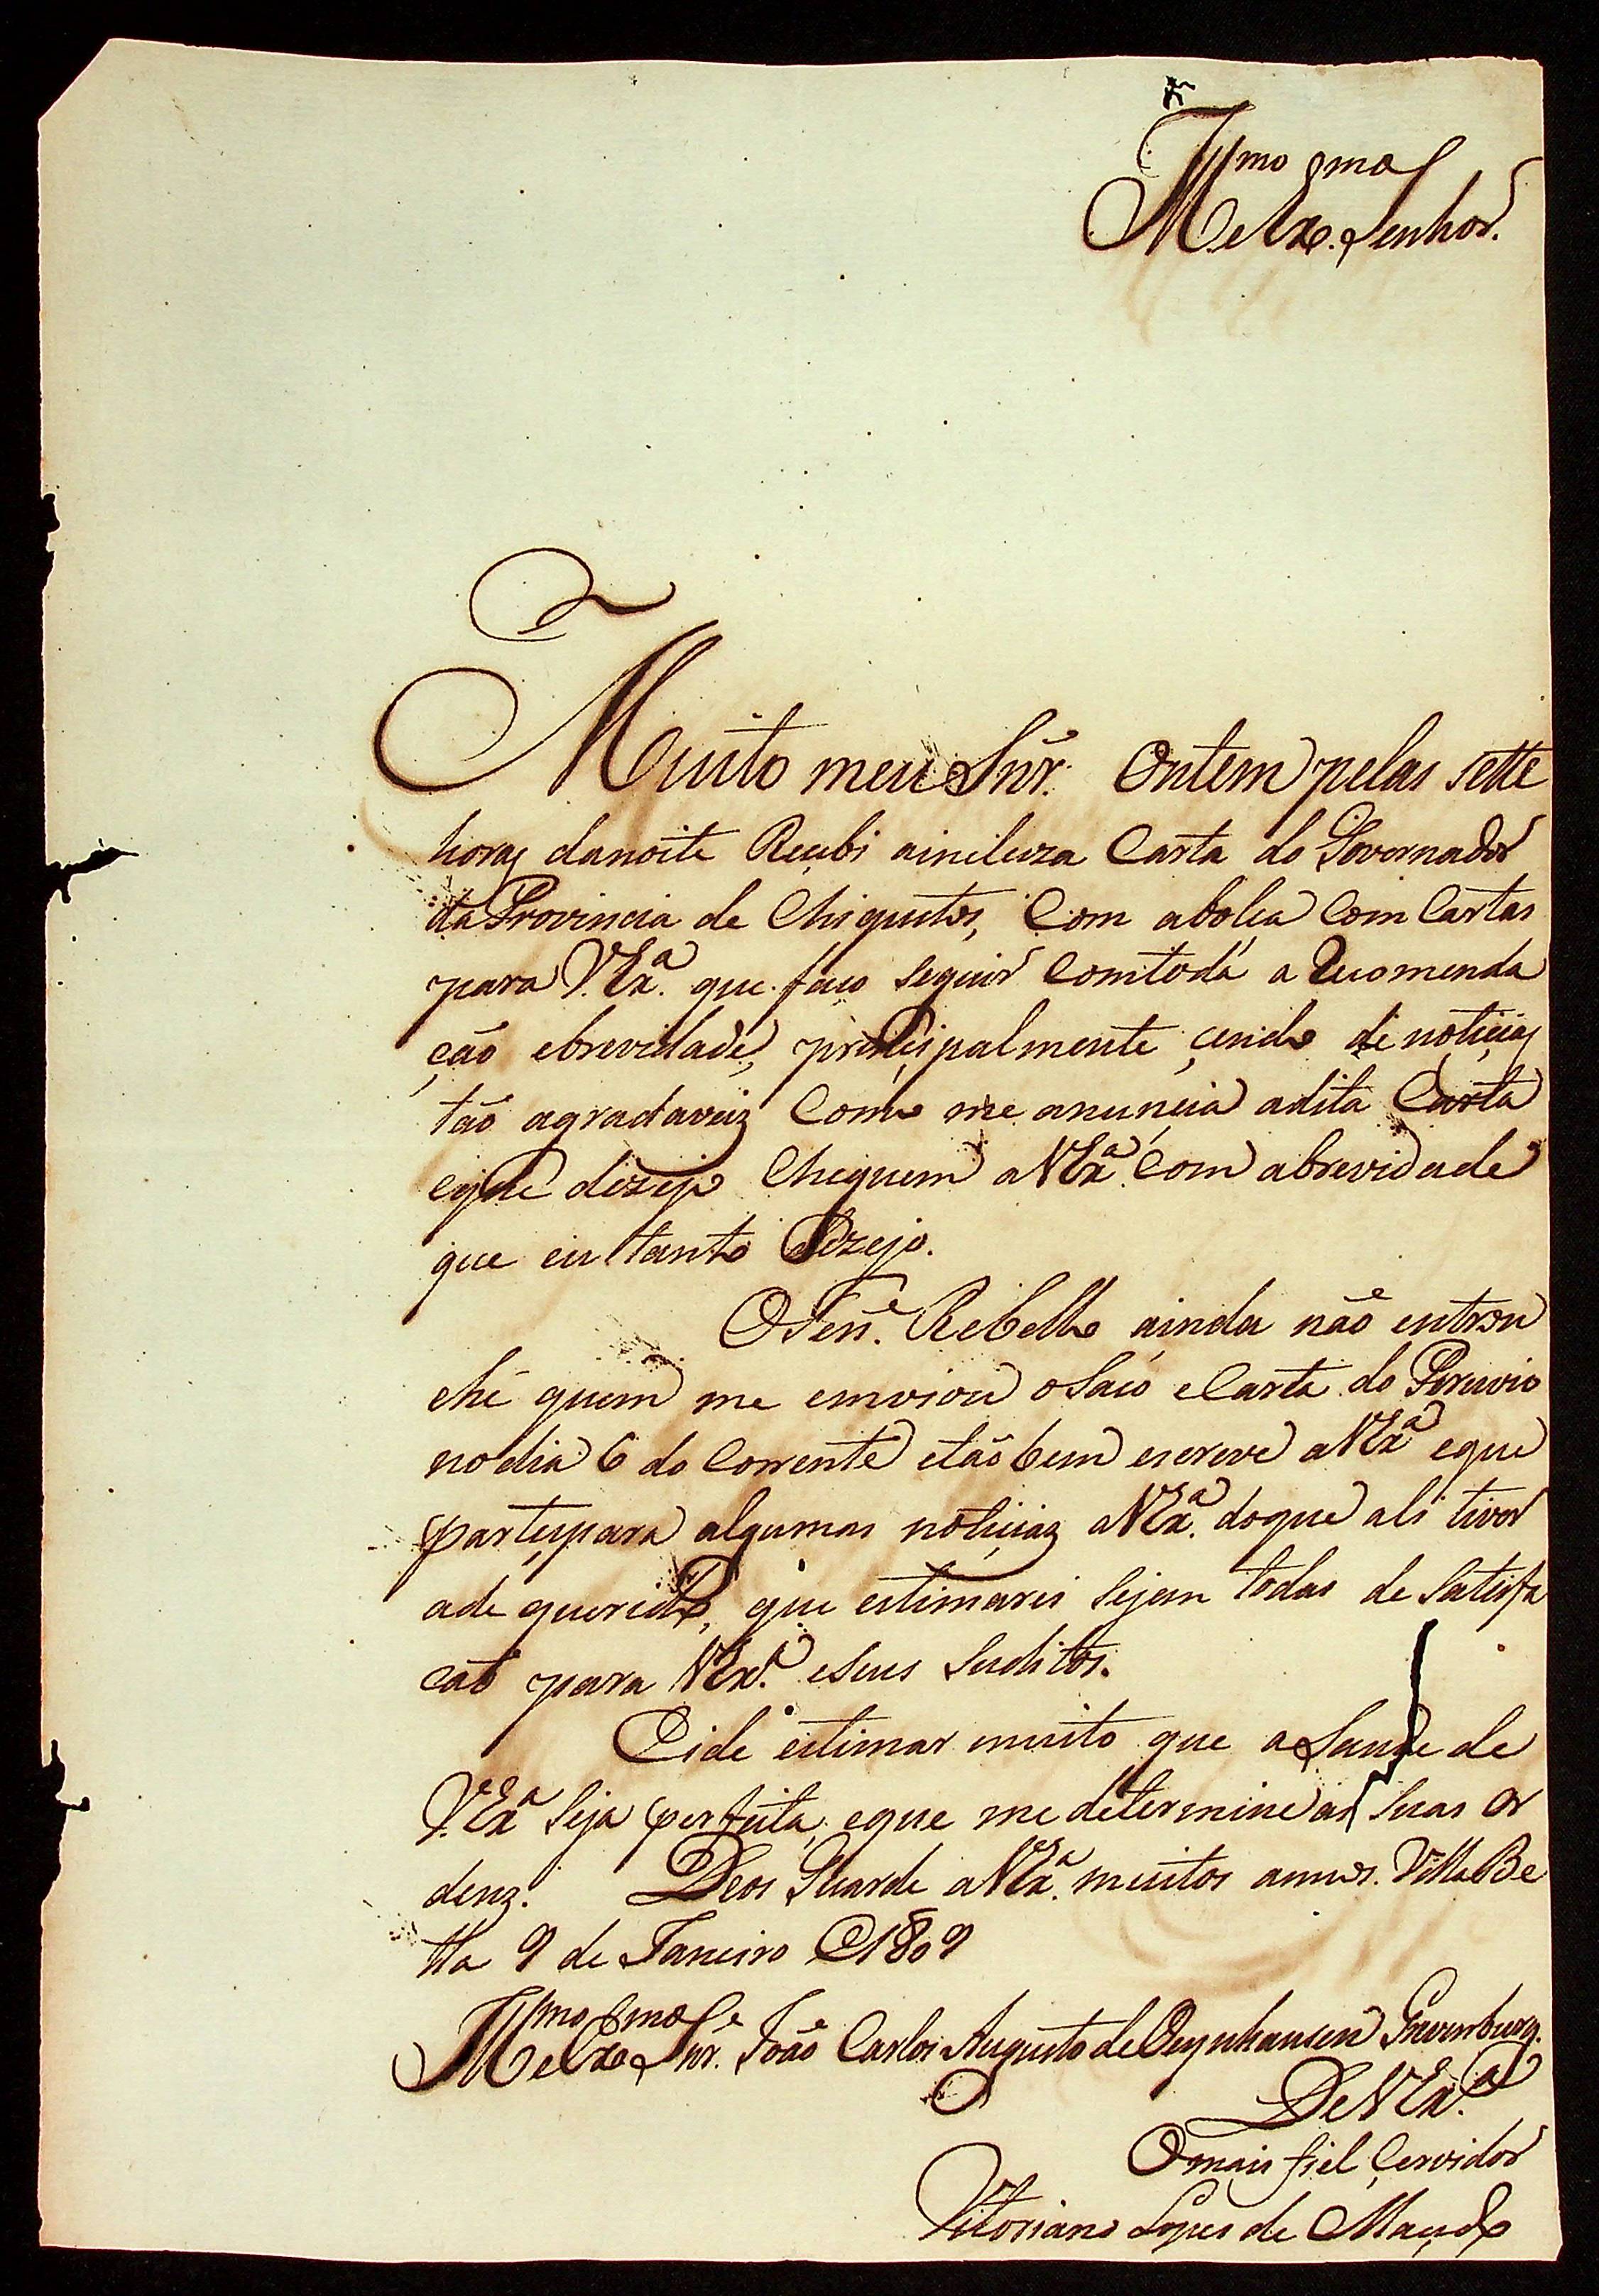 Illmo e Exmo Senhor.
Muito meu Snr. Ontem pelas sette
horas danoite Recebi aincluza Carta do Governador
da Provincia de Chiquitos, Com abolça Com Cartas
para V.Exa. que faço seguir Comtoda a Recomenda
ção ebrevidade, prinçipalmente çendo de notiçias
tão agradaveiz Como me anunçia adita Carta
eque dezejo Cheguem aVExa. Com abrevidade
que eu tanto Dezejo.
OTene. Rebello ainda não entrou
ehé quem me emviou o e Carta do
nodia 6 do Corrente etão bem escreve aVExa eque
partiçipara algumas notiçiaz aVExa. doque ali tiver
adequerido, que estimarei sejam todas de Satisfa
ção para VExa. eseus Suditos.
Eide estimar muito que aSaude de
V.Exa seja perfeita, eque me determine as suas or
denz. Deos Guarde aVExa. muitos annos. Villa Be
lla 9 de Janeiro @1809
Illmo e Exmo Snr. João Carlos Augusto de Oeynhausen Grevenburg.
DeVExa.
Omais fiel Çervidor
Vitoriano Lopes de Maçedo